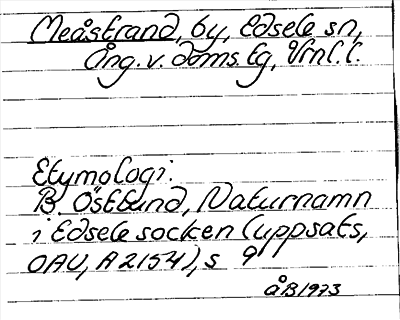 Meåstrand, by, Edsele sn,
Ång. v. doms. tg, Vrnl. l.
Etymologi:
B. Östlund, Naturnamn
i Edsele socken (uppsats,
OAU, A 2154), s 9
åB 1973